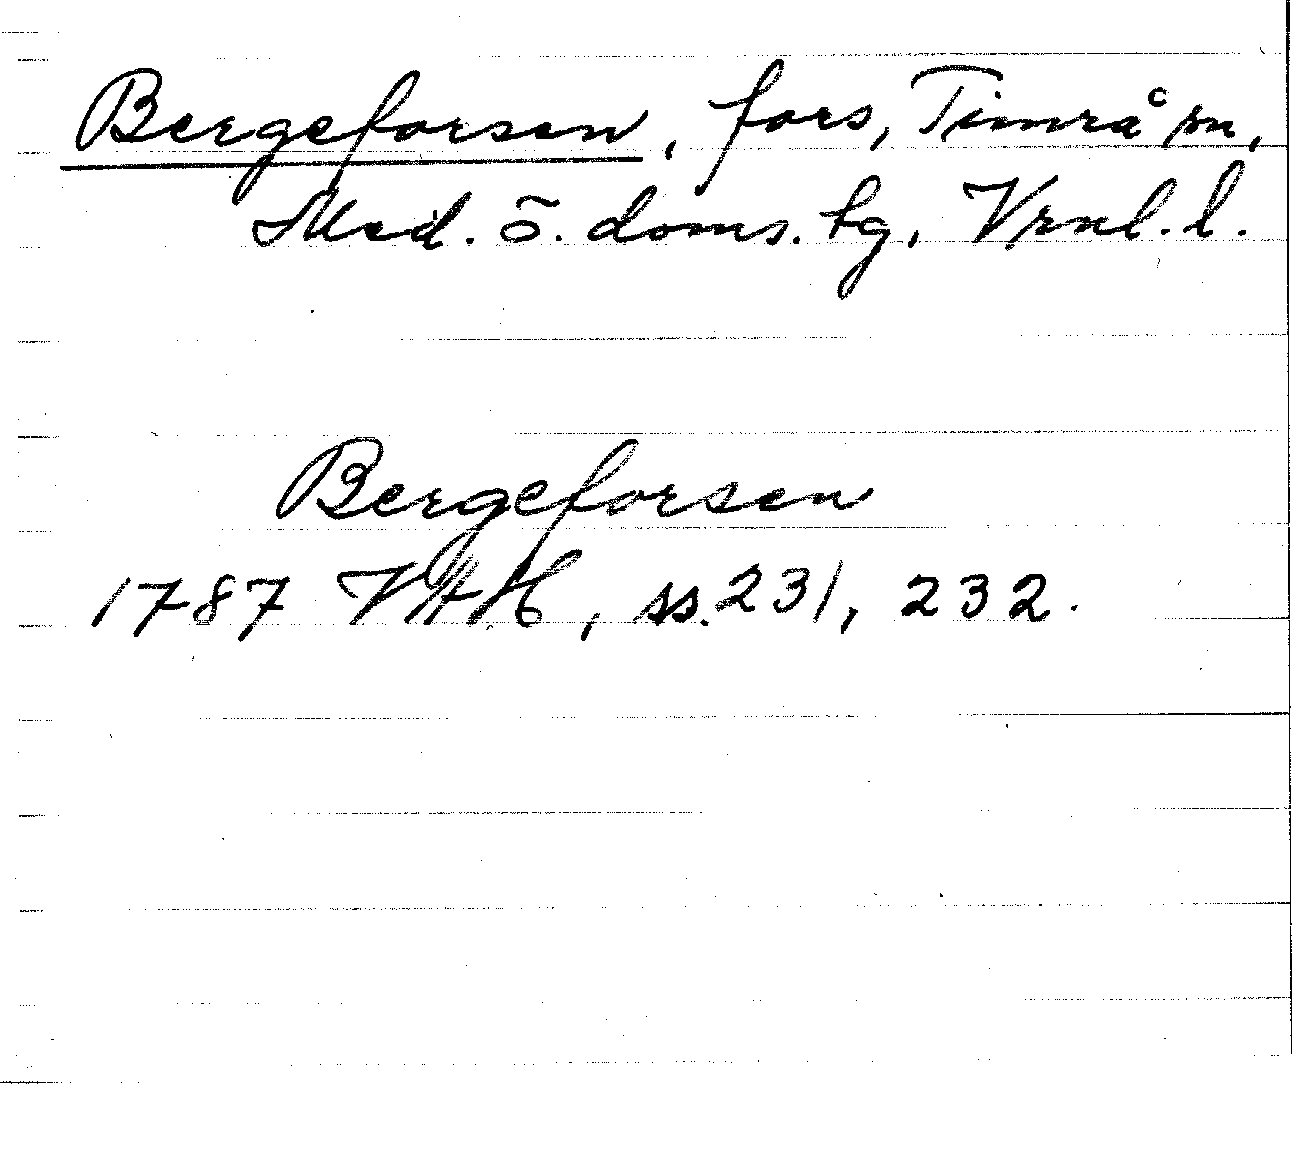 Bergeforsen, fors, Timrå sn,
Med. ö. doms. tg, Vrnl. l.
Bergeforsen
1787 VHH, ss. 231, 232.